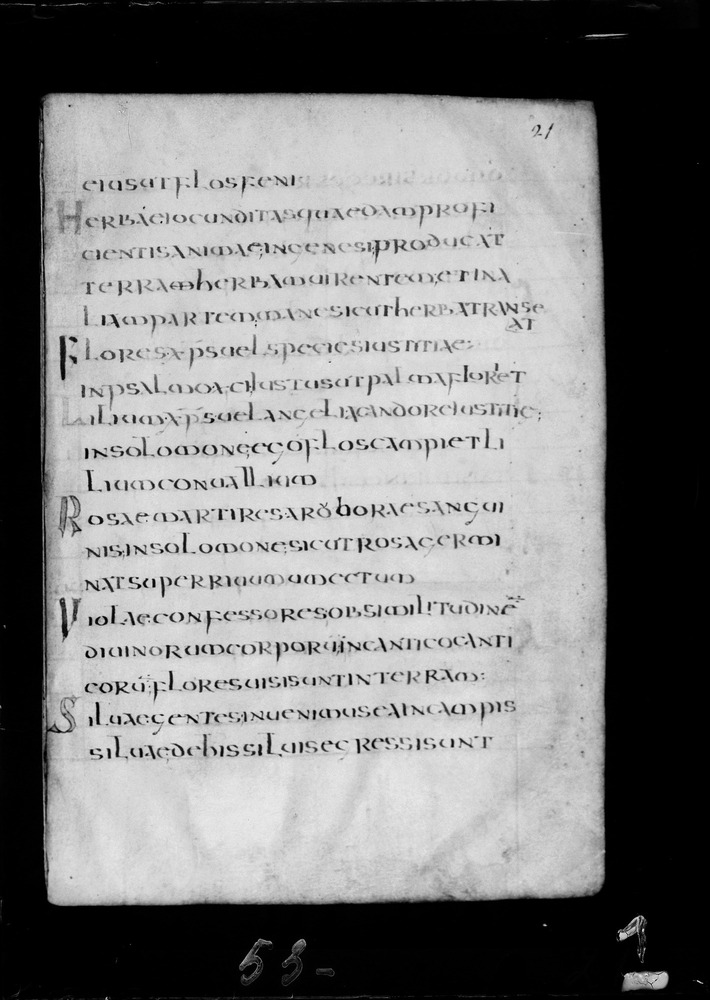 21
eius ut flos feni
Herba iocunditas quaedam profi
cientis animae; in genesi; producat
terram herbam uirentem; et in a
liam partem; mane sicut herba transe
at
Flores xp̄s uel species iustitiae;
in psalmo xci iustus ut palma floret
Lilium xp̄s uel angeli candor eiustitiae;
in solomone; ego flos campi et li
lium conuallium
Rosae martires a rubore sangui
nis; in solomone; sicut rosa germi
nat super riuum umectum
Violae confessores ob similitudinē
diuinorum corporū; in cantico canti
corū; flores uisi sunt in terram;
Siluae gentes; inuenimus ea in campis
siluae de his siluis egressi sunt
53-
1